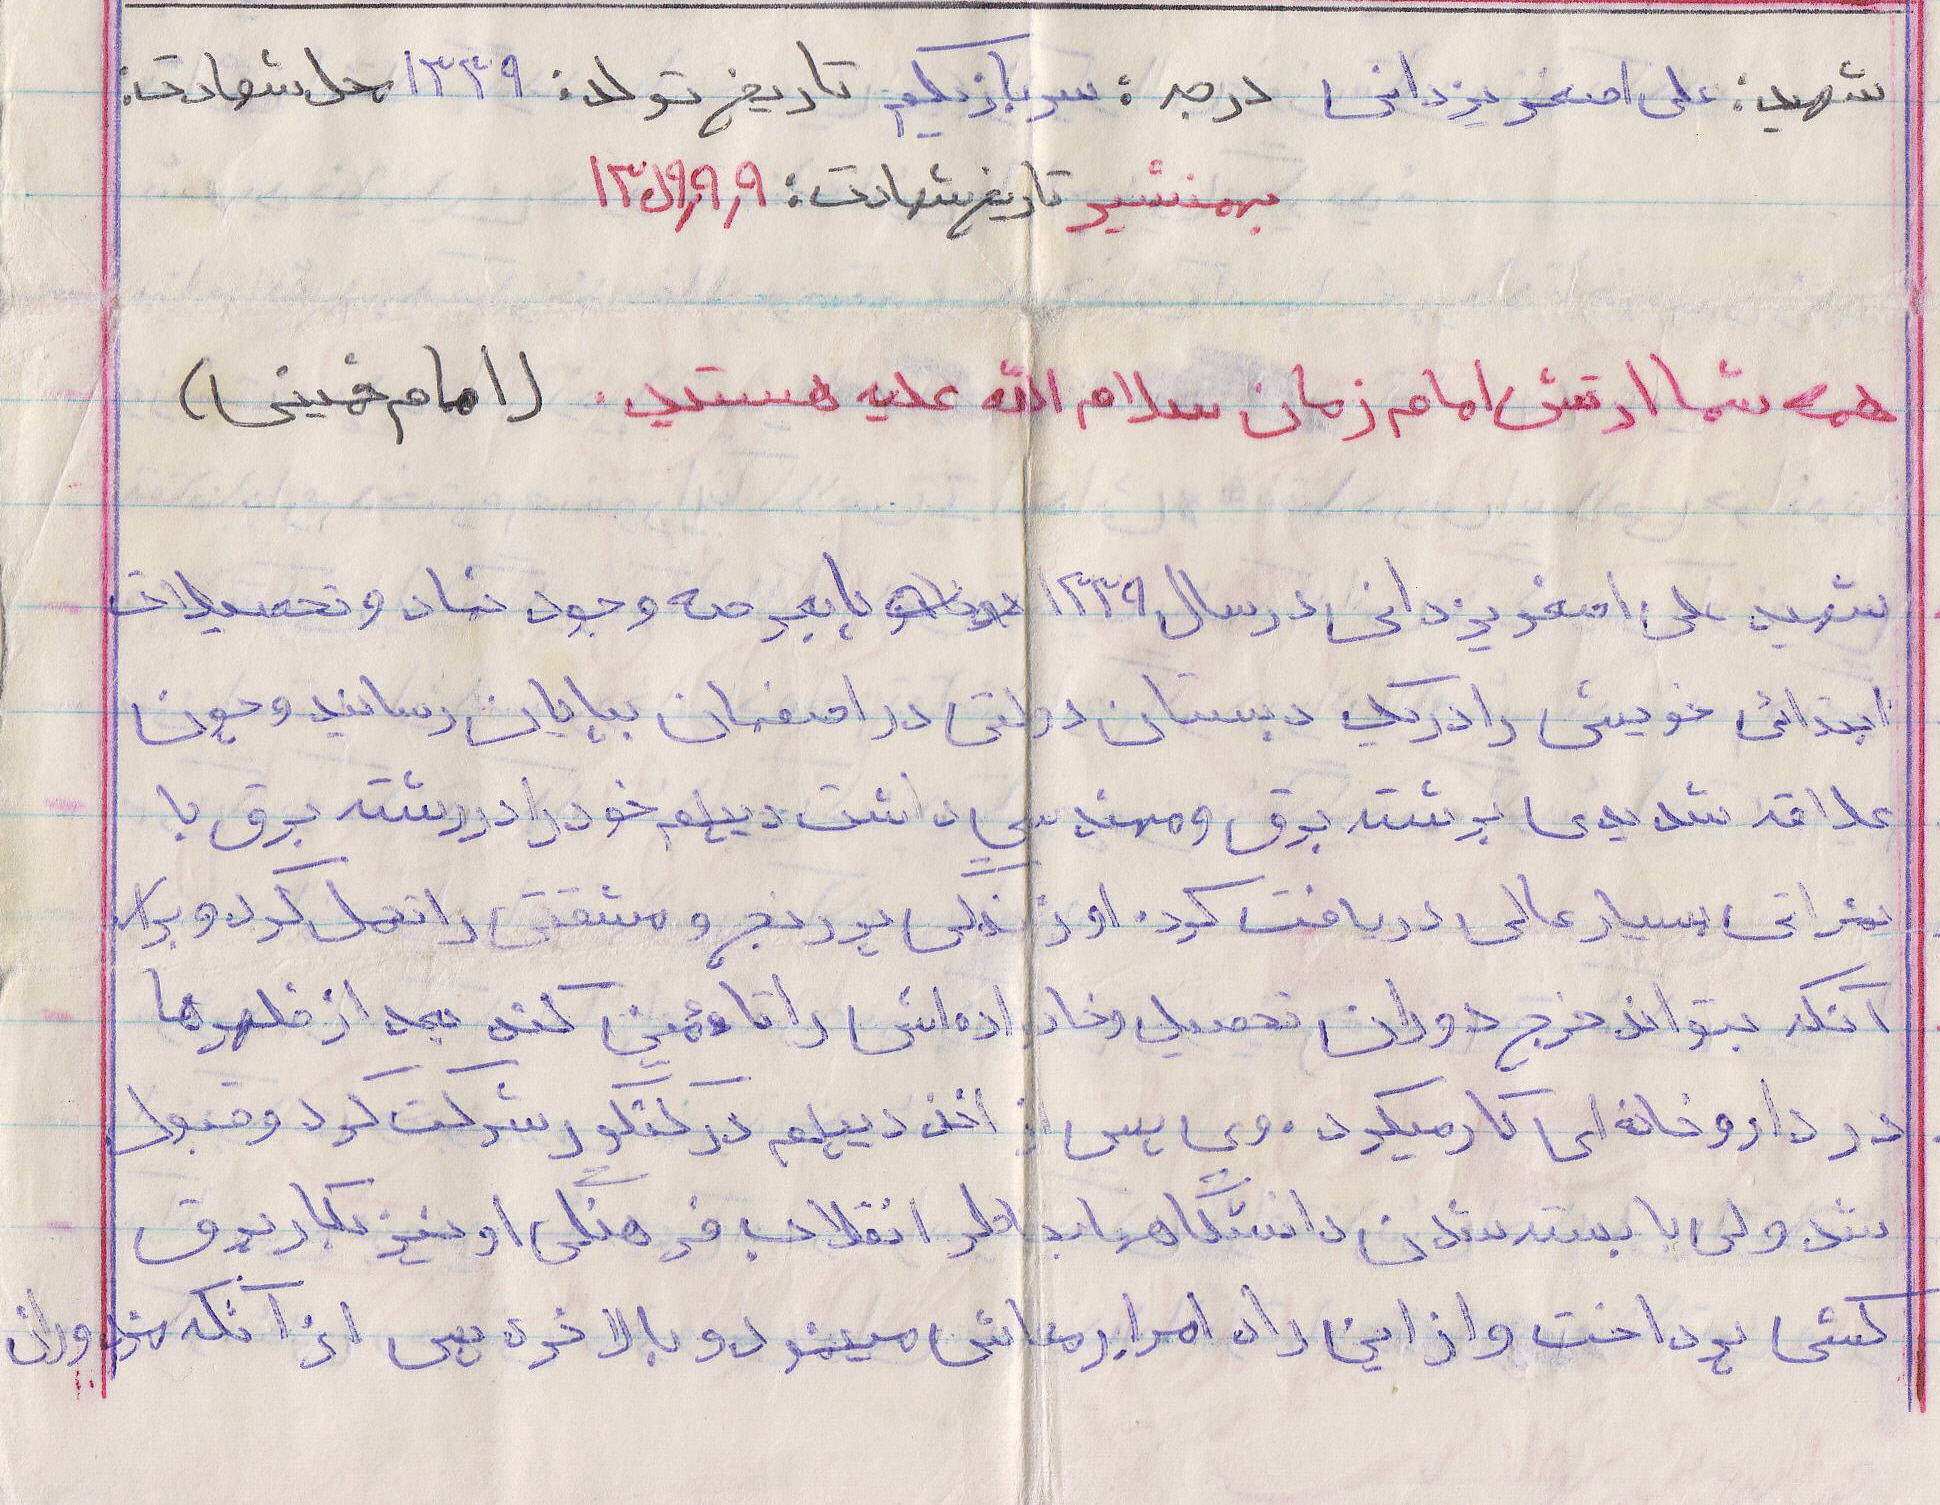 شهید: علی اصغر یزدانی درجه: سرباز یکم تاریخ تولد: ۱۳۳۹ محل شهادت:
بهمنشیر تاریخ شهادت: ۱۳۵۹٫۹٫۹
همه شما ارتش امام زمان سلام الله علیه هستید. (امام خمینی)
شهید علی اصغر یزدانی در سال ۱۳۳۹ پا بعرصه وجود نهاد و تحصیلات
ابتدائی خویش را در یک دبستان دولتی در اصفهان بپایان رسانید و چون
علاقه شدیدی برشته برق و مهندسی داشت دیپلم خود را در رشته برق با
نمراتی بسیار عالی دریافت کرد. او زندگی پر رنج و مشقتی را تحمل کرد و برای
آنکه بتواند خرج دوران تحصیل و خانواده اش را تامین کند بعد از ظهرها
در داروخانه ای کار میکرد. وی پس از اخذ دیپلم در کنکور شرکت کرد و قبول
شد ولی با بسته شدن دانشگاهها بخاطر انقلاب فرهنگی او نیز بکار برق
کشی پرداخت و از این راه امرار معاش مینمود و بالاخره پس از آنکه دوران